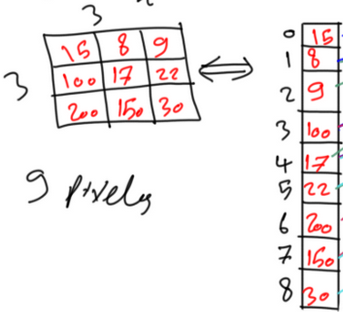 3
15 8 9
3 100 17 22
200 150 30
9 pixels
0 15
1 8
2 9
3 100
4 17
5 22
6 200
7 150
8 30